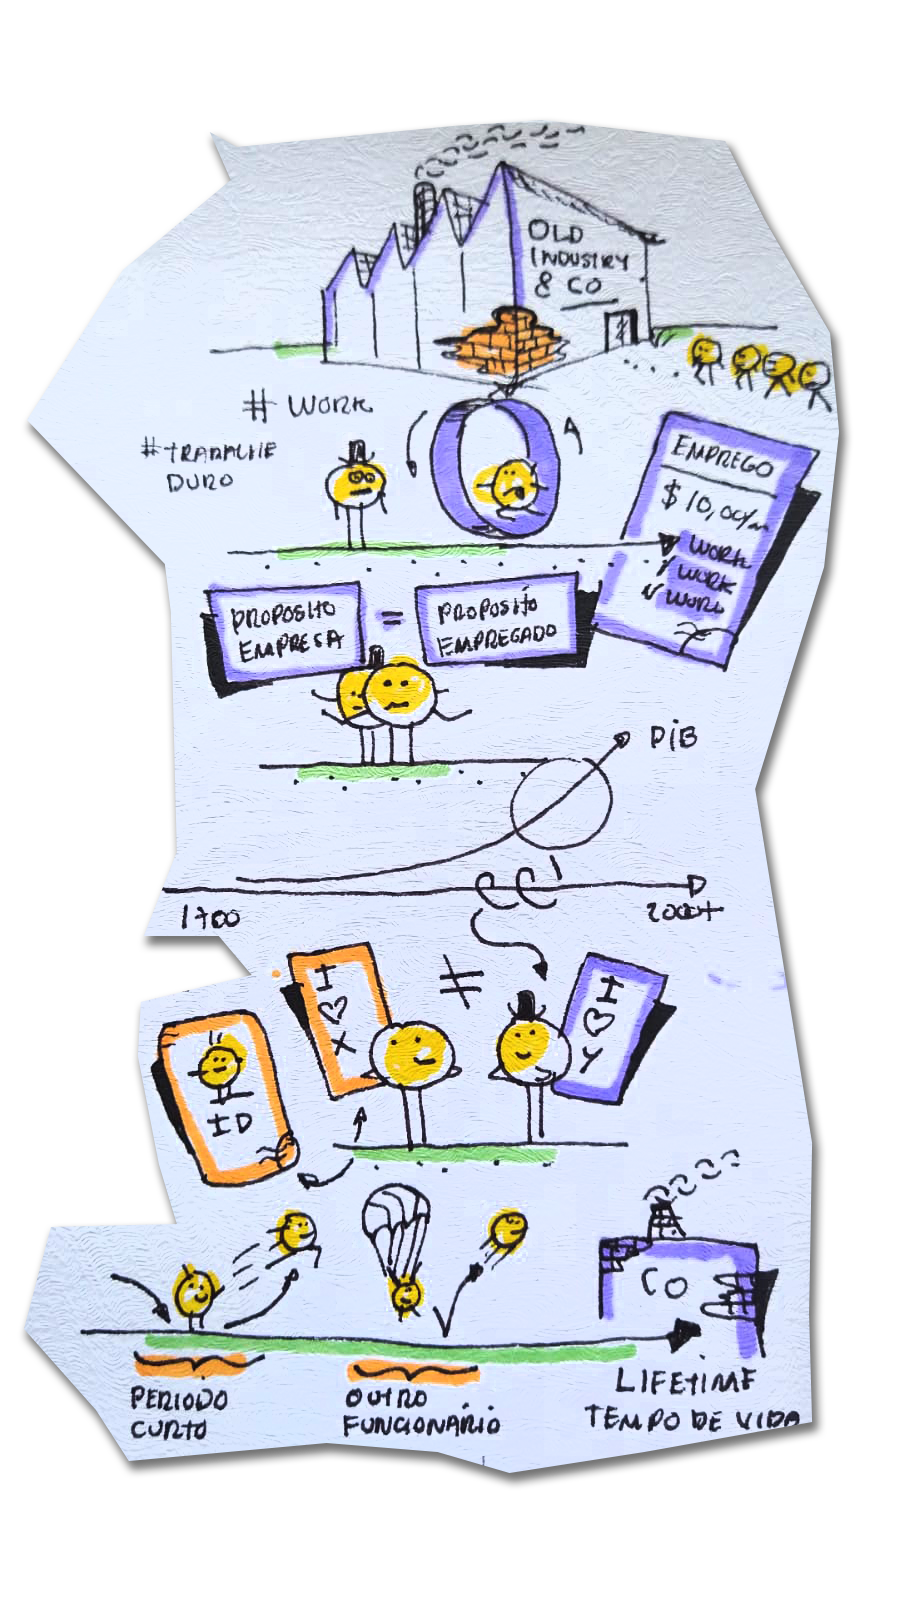 OLD
INDUSTRY
& CO
# WORK
# TRABALHE
DURO
EMPREGO
$ 10,00/m
WORK
✓ WORK
✓ WORK
PROPOSITO
EMPRESA
=
PROPOSITO
EMPREGADO
PIB
1700
2000+
I
♡
X
≠
I
♡
Y
ID
CO
PERIODO
CURTO
OUTRO
FUNCIONÁRIO
LIFETIME
TEMPO DE VIDA